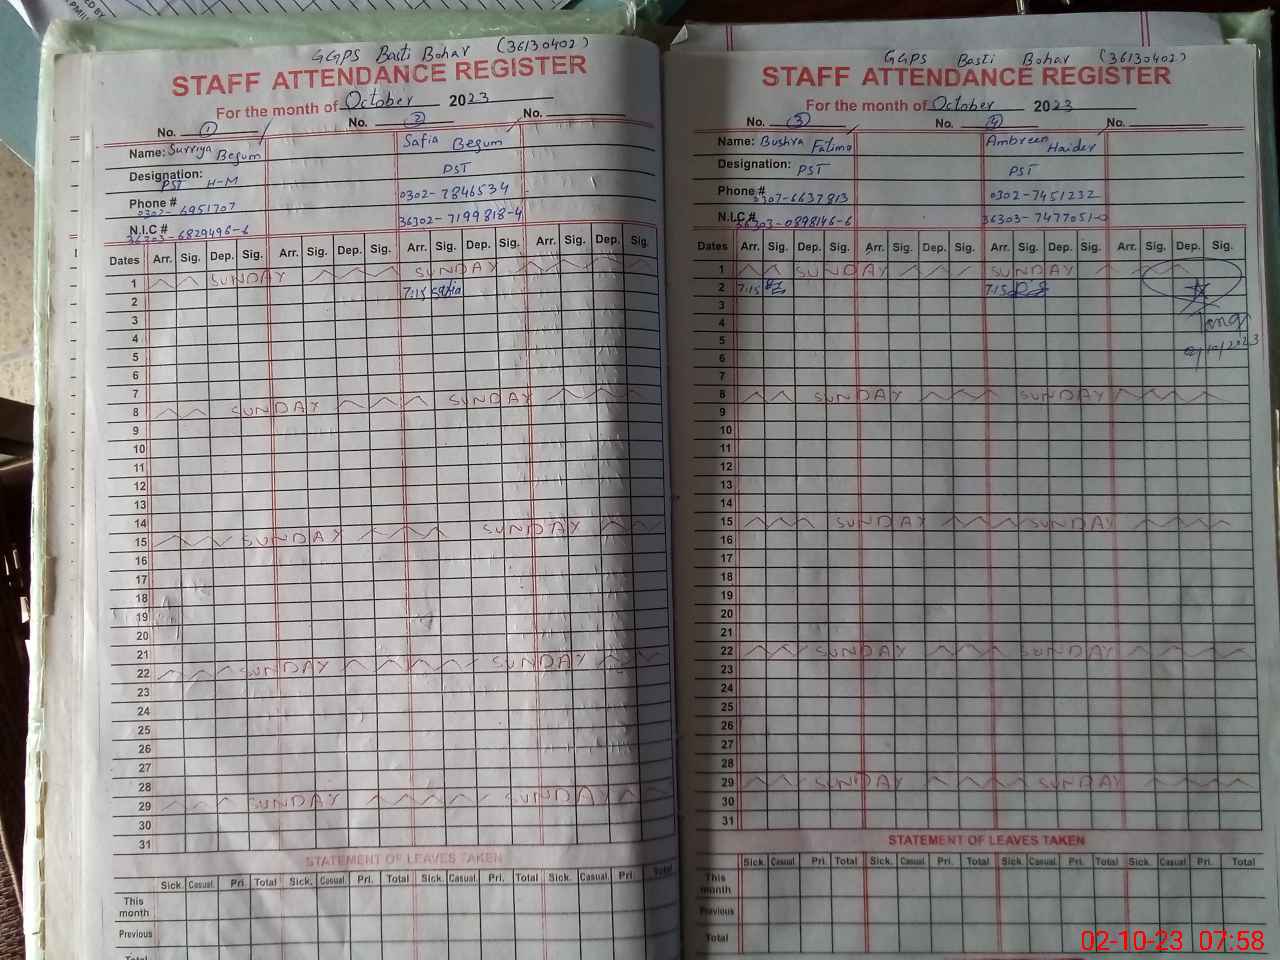 GGPS Basti Bohar (36130402)
STAFF ATTENDANCE REGISTER
For the month of October 2023
No. 1 No. 2 No.
Name: Surriya Begum Safia Begum
Designation: PST H-M PST
Phone # 0302-6951707 0302-7846534
N.I.C # 36303-6829496-6 36302-7199818-4
Dates Arr. Sig. Dep. Sig. Arr. Sig. Dep. Sig. Arr. Sig. Dep. Sig. Arr. Sig. Dep. Sig.
1 SUNDAY SUNDAY
2 7:15 Safia
3
4
5
6
7
8 SUNDAY SUNDAY
9
10
11
12
13
14
15 SUNDAY SUNDAY
16
17
18
19
20
21
22 SUNDAY SUNDAY
23
24
25
26
27
28
29 SUNDAY SUNDAY
30
31
STATEMENT OF LEAVES TAKEN
Sick. Casual. Pri. Total Sick. Casual. Pri. Total Sick. Casual. Pri. Total Sick. Casual. Pri. Total
This month
Previous
Total
GGPS Basti Bohar (36130402)
STAFF ATTENDANCE REGISTER
For the month of October 2023
No. 3 No. 4 No.
Name: Bushra Fatima Ambreen Haider
Designation: PST PST
Phone # 0307-6637813 0302-7451232
N.I.C # 36303-0898146-6 36303-7477051-0
Dates Arr. Sig. Dep. Sig. Arr. Sig. Dep. Sig. Arr. Sig. Dep. Sig. Arr. Sig. Dep. Sig.
1 SUNDAY SUNDAY
2 7:15 7:15
3
4
5
6 02/10/2023
7
8 SUNDAY SUNDAY
9
10
11
12
13
14
15 SUNDAY SUNDAY
16
17
18
19
20
21
22 SUNDAY SUNDAY
23
24
25
26
27
28
29 SUNDAY SUNDAY
30
31
STATEMENT OF LEAVES TAKEN
Sick. Casual. Pri. Total Sick. Casual. Pri. Total Sick. Casual. Pri. Total Sick. Casual. Pri. Total
This month
Previous
Total
02-10-23 07:58